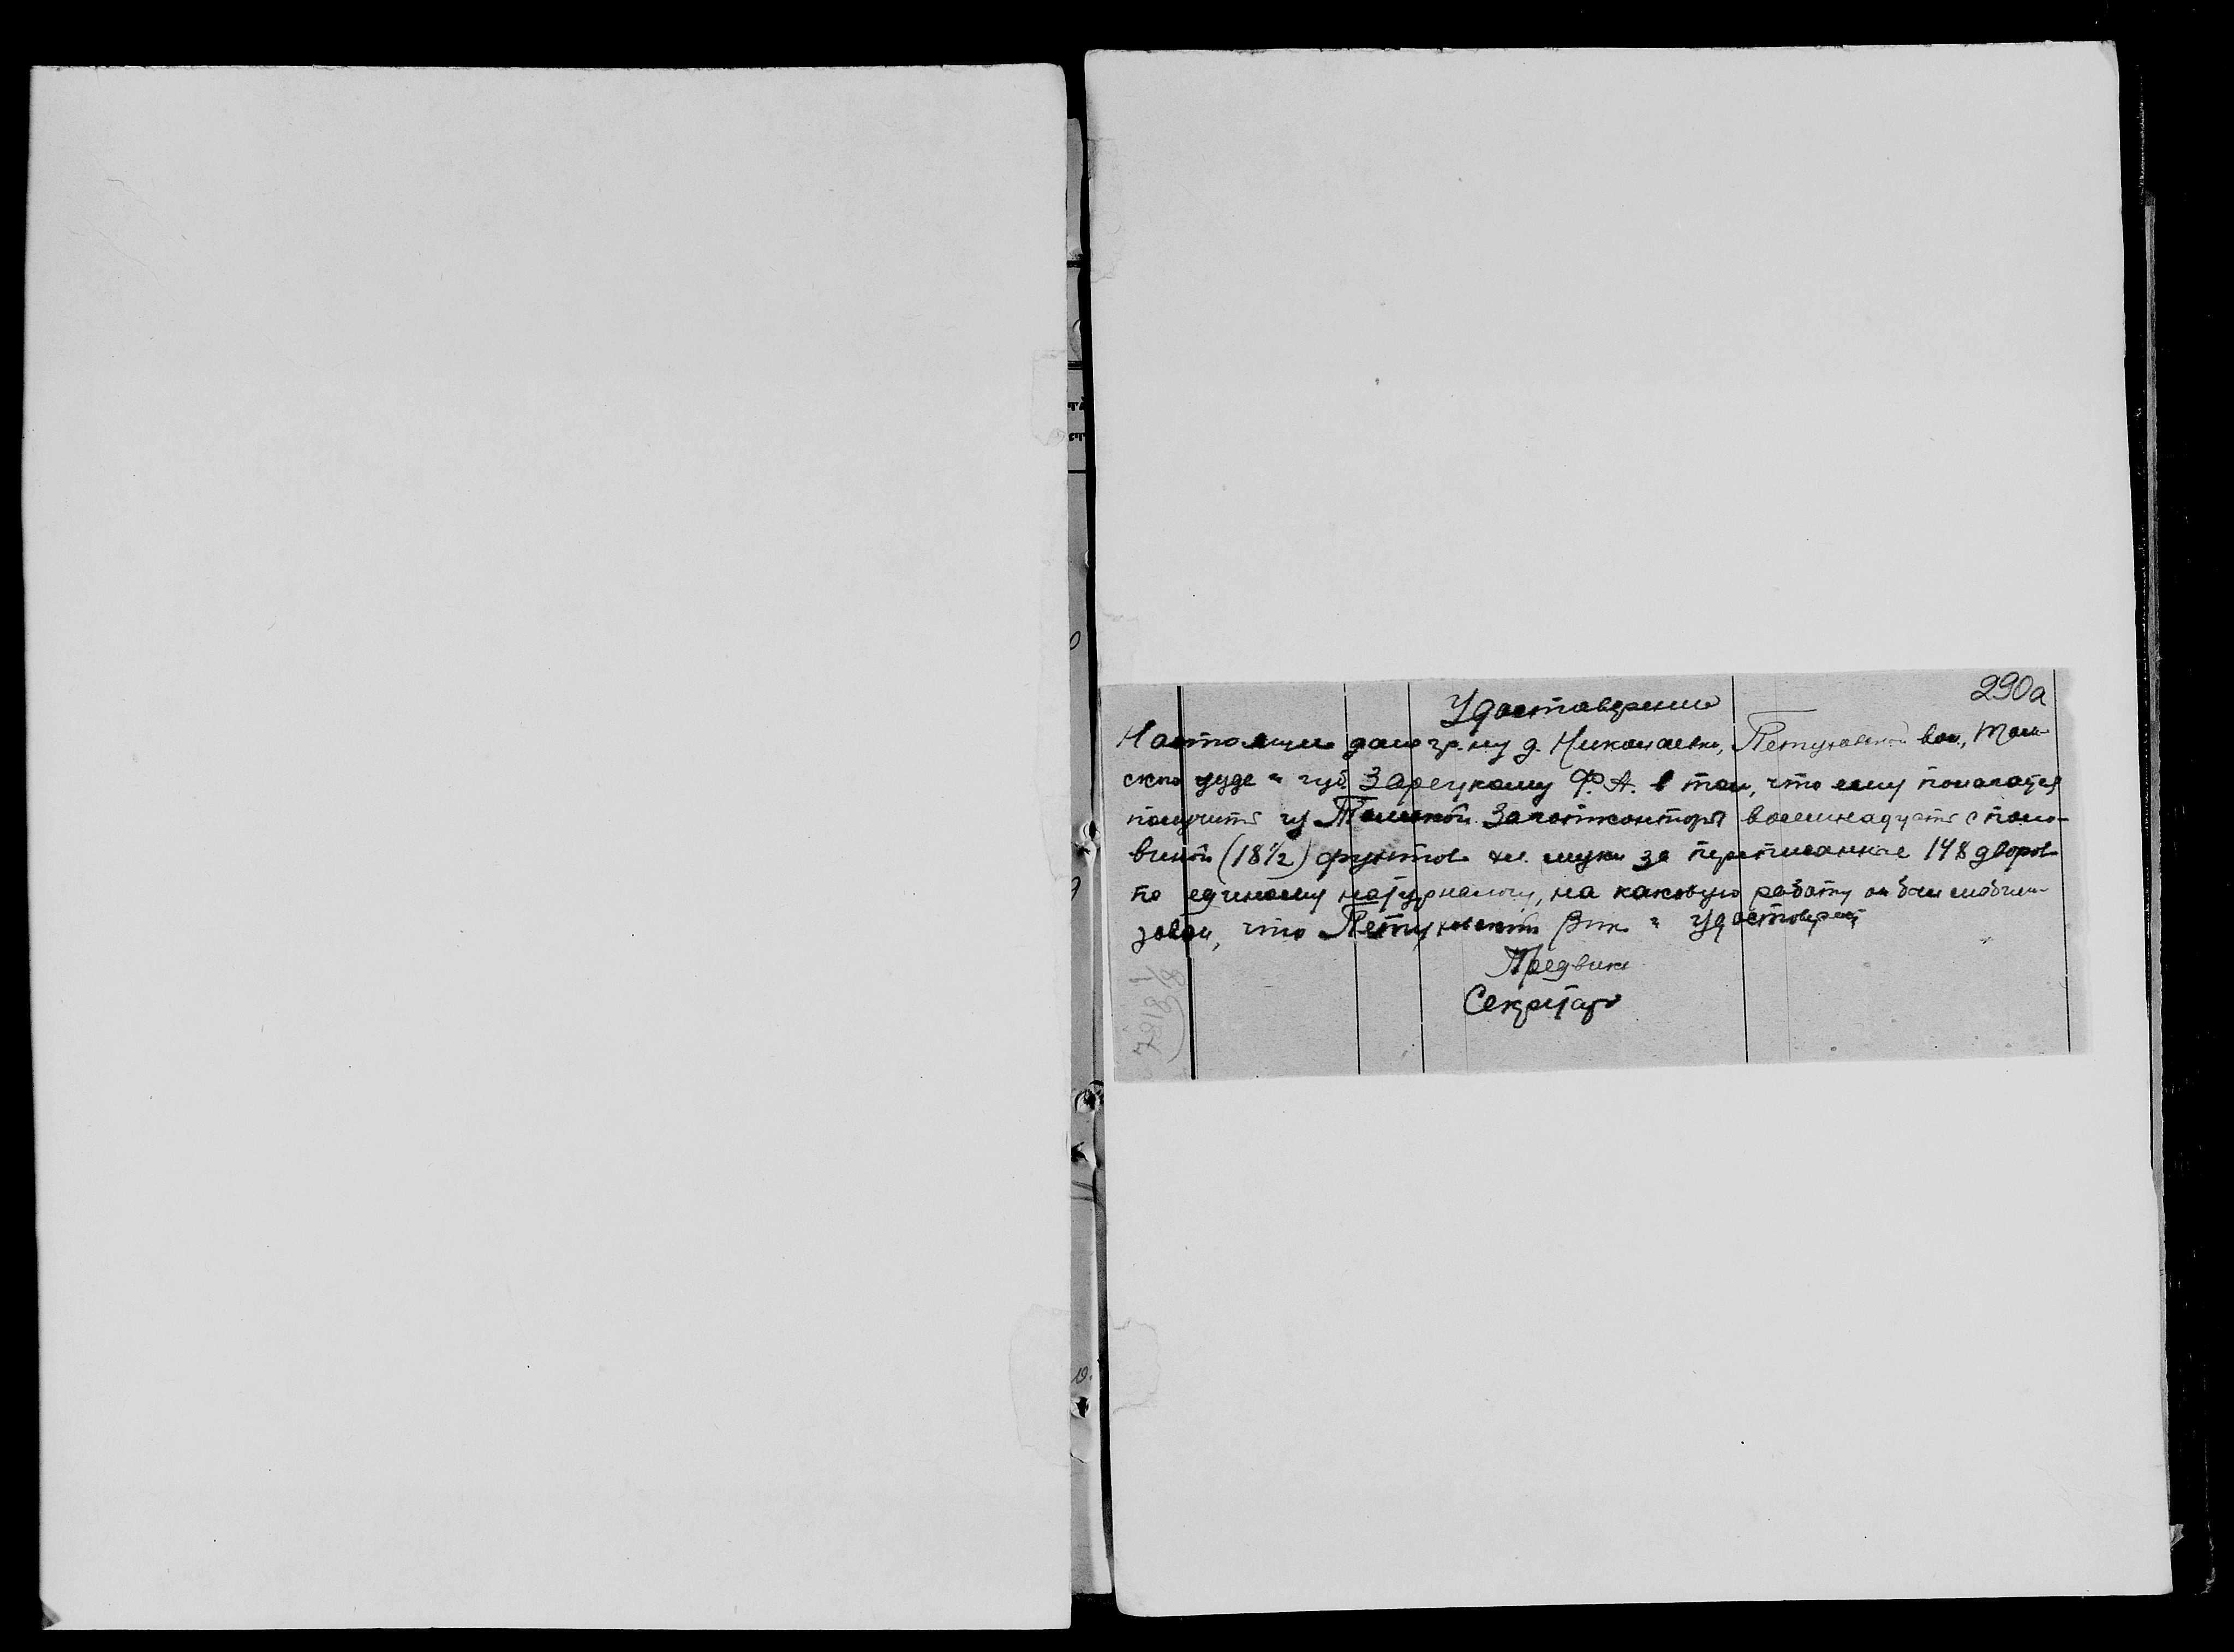 290а
Удостоверение
Настоящим дано гр-ну д. Николаевки, Петуховской вол., Том-
ского уезда и губ. Зарецкому Ф. А. в том, что ему полагается
получить из Томской Заготконторы восемнадцать с поло-
виной (18½) фунтов хл. муки за переписанные 148 дворов
по единому натурналогу, на каковую работу он был мобили-
зован, что Петуховский Вик и удостоверяет
Предвик
Секретарь